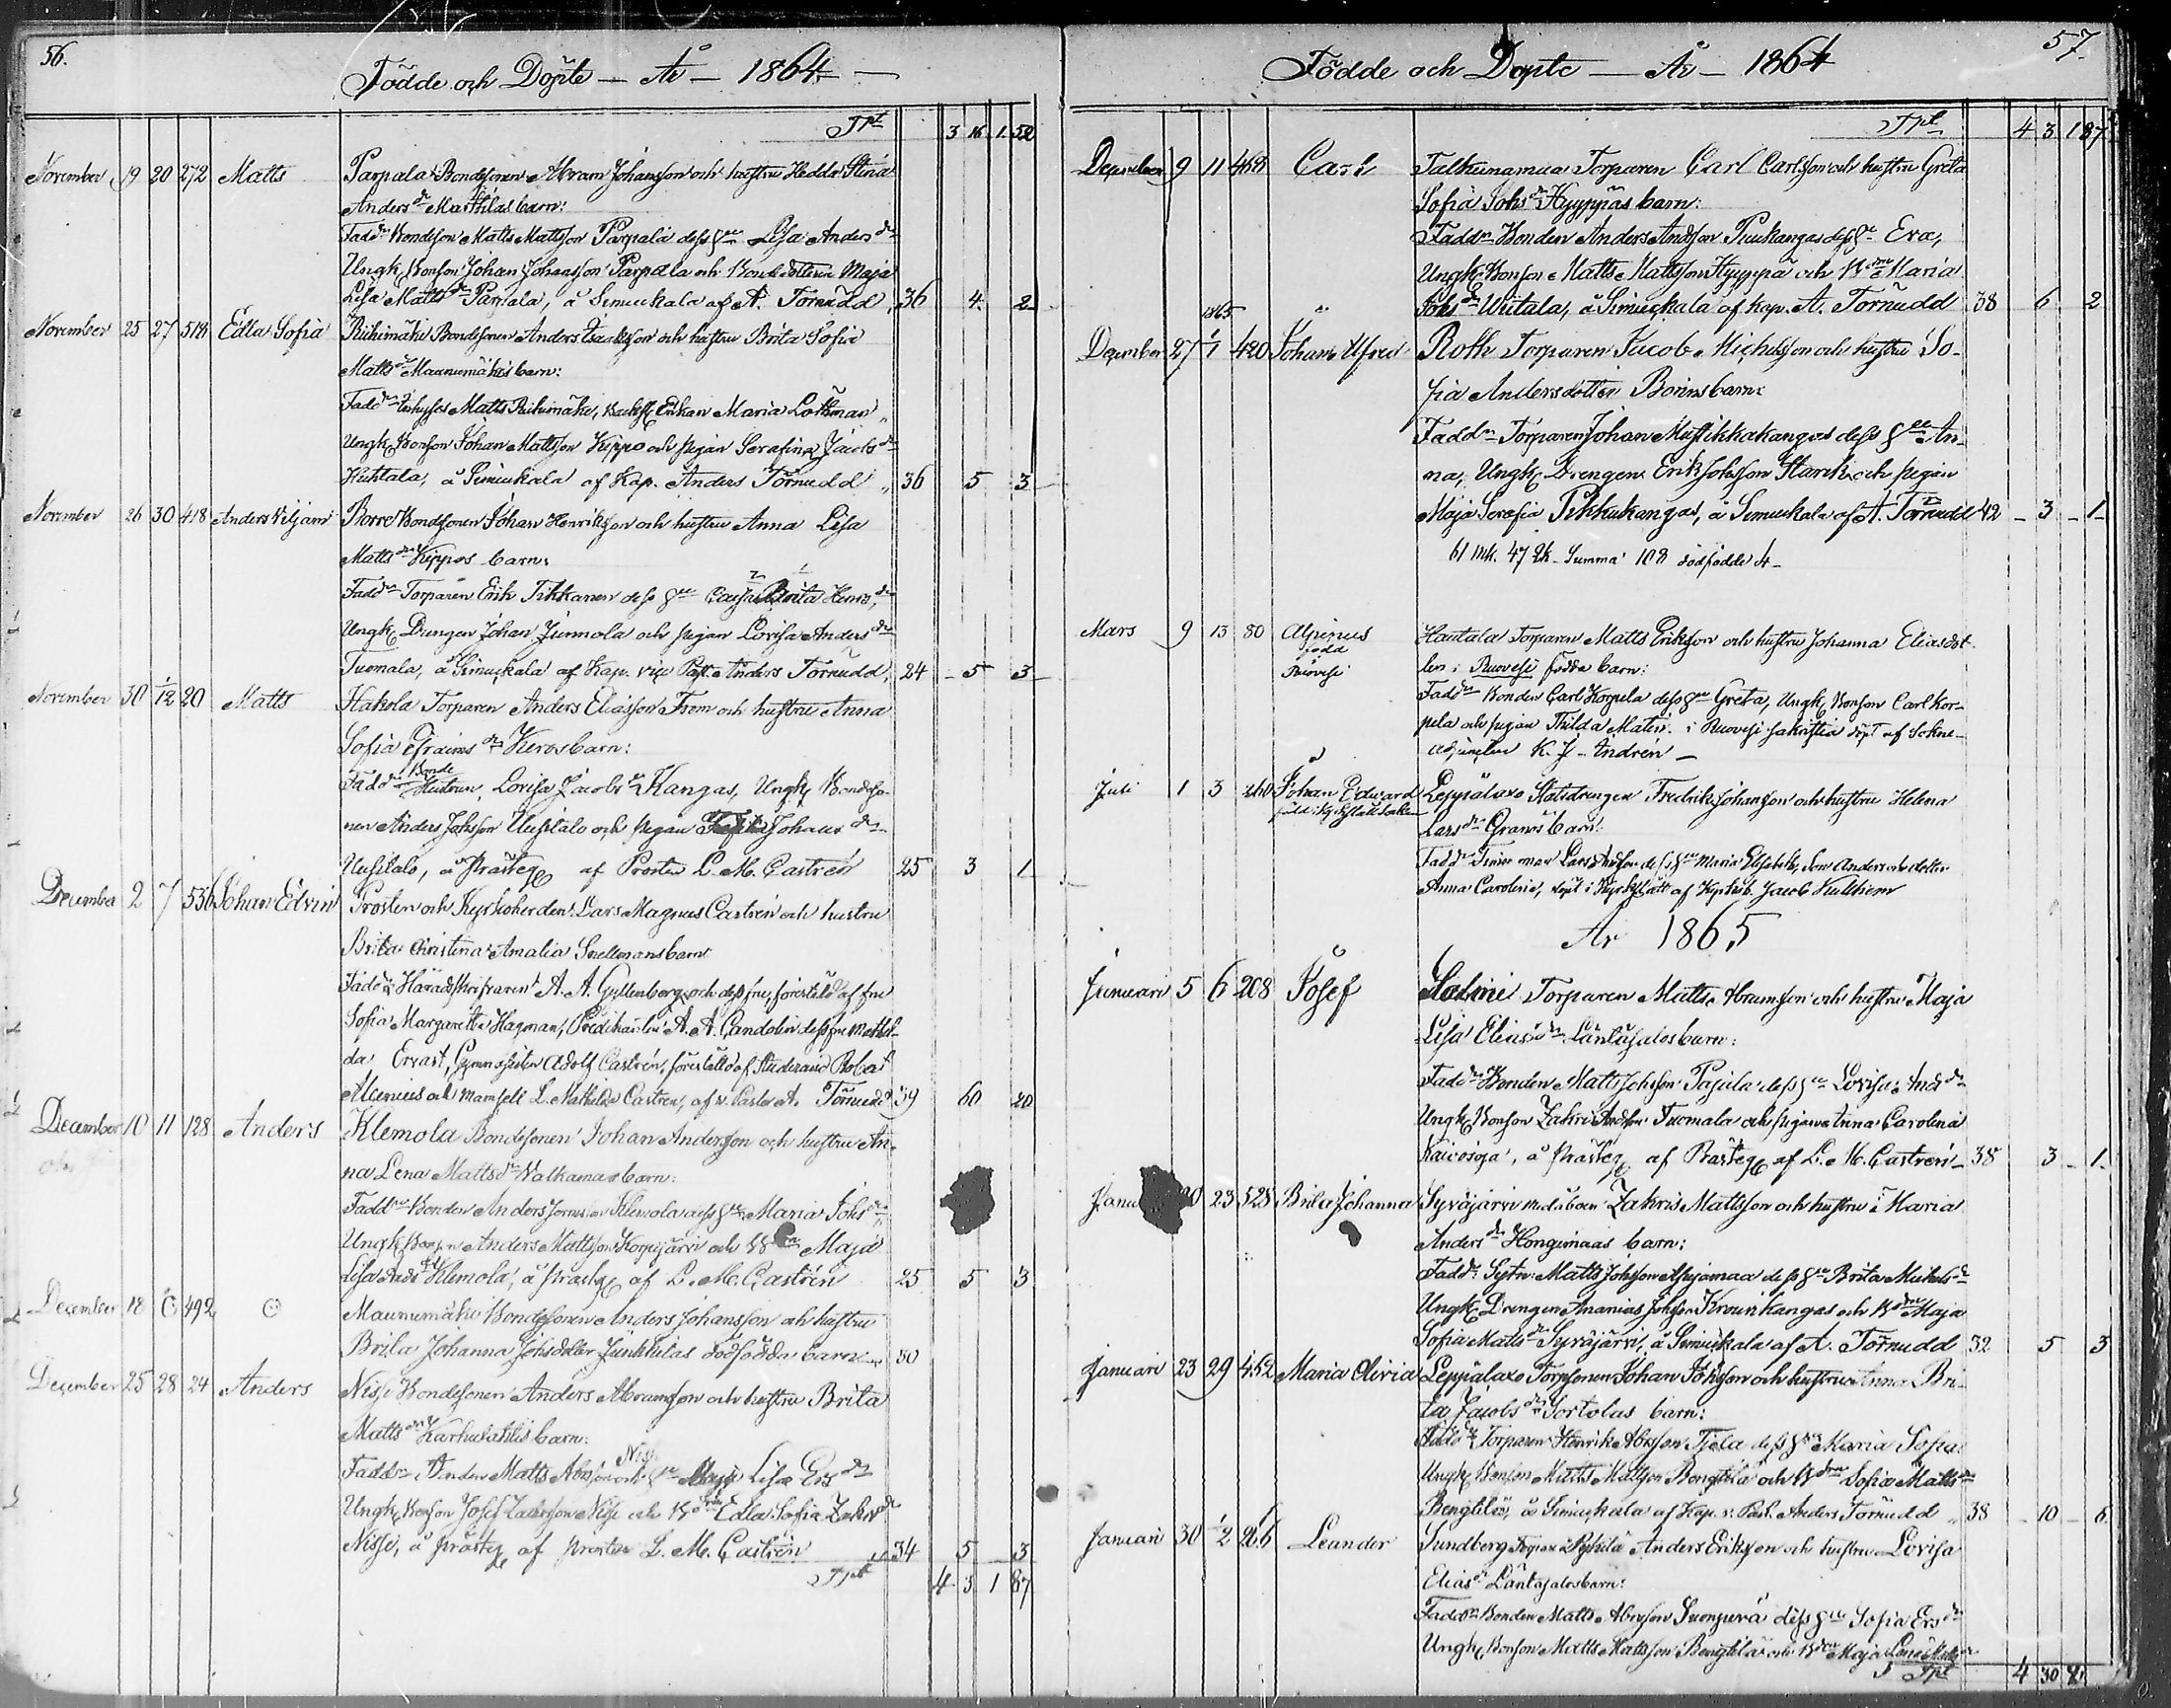 56.
Födde och Döpte — År — 1864 —
Trpt 3 16 1 52
November 19 20 272 Matts Parpala Bondesonen Abram Johansson och hustru Hedda Stina
Anders dr Marttilas barn:
Fadd. Bondeson Matts Mattsson Parpala dess hu Lisa Anders dr
Ungk. Bonson Johan Johansson Parpala och Bondedottern Maja
Lisa Matts dr Parpala, å Simuckala af A. Tornudd, 36 4 2
November 25 27 518 Edla Sofia Riihimäki Bondesonen Anders Isaaksson och hustru Brita Sofia
Matts dr Maunumäkis barn:
Fadd. Inhyses Matts Riihimäki, Enkan Maria Lothman
Ungk. Bonson Johan Mattsson Kippo och pigan Serafina Jacobs dr
Huhtala, å Simuckala af Kap. Anders Tornudd 36 5 3
November 26 30 418 Anders Viljam Borre Bondsonen Johan Henriksson och hustru Anna Lisa
Matts dr Kippos barn:
Fadd. Torparen Erik Tikkanen dess hu Caisa Brita Henr. dr
Ungk. Drengen Johan Junnola och pigan Lovisa Anders dr
Tuomala, å Simuckala af Kap. vice Past. Anders Tornudd, 24 5 3
November 30 1/12 20 Matts Hakola Torparen Anders Eliasson From och hustru Anna
Sofia Efraims dr Keros barn:
Fadd. Bonde Hustrun, Lovisa Jacobs dr Kangas, Ungk. Bondeso-
nen Anders Johsson Uusitalo och pigan Johans dr
Uusitalo, å Prästeg. af Prosten L. M. Castrén 25 3 1
December 2 7 536 Johan Edvin Prosten och Kyrkoherden Lars Magnus Castrén och hustru
Brita Christina Amalia Snellmans barn
Fadd. Häradskrifvaren A. A. Gyllenberg och dess fru, föreställd af fru
Sofia Margaretta Hagman, Predikanten A. A. Candolin dess fru Mathil-
da Ervast, Gymnasisten Adolf Castrén, föreställd af Studerand Robert
Alcenius och Mamsell L. Mathilda Castrén, af v. Pastor A. Tornudd 39 60 20
December 10 11 128 Anders Klemola Bondesonen Johan Andersson och hustru An-
na Lena Matts dr Valkamas barn:
Fadd. Bonden Anders Klemola dess hu Maria Johs dr
Ungk. Bonson Anders Mattsson Korpijärvi och Maja
Lisa Ands dr Klemola, å Prästeg. af L. M. Castrén 25 5 3
December 18 492 Maunumäki Bondesonen Anders Johansson och hustru
Brita Johanna Johsdotter Junkkilas dödfödda barn 30
December 25 28 24 Anders Nisse Bondesonen Anders Abramsson och hustru Brita
Matts dr Karhulahtis barn:
Nisse
Fadd. Bonden Matts Abrsson och hu Maja Lisa Ers dr
Ungk. Bonson Josef Zachrsson Nisse och Bdrn Edla Sofia Zachrs dr
Nisse, å prästeg. af prosten L. M. Castrén 34 5 3
Trpt 4 3 1 87
57.
Födde och Döpte — År — 1864
Trpt 4 3 1 87
December 9 11 468 Carl Talkunamaa Torparen Carl Carlsson och hustru Greta
Sofia Johs dr Hyyppäs barn:
Fadd. Bonden Anders Andsson Puukangas dess hu Eva,
Ungk. Bonson Matts Mattsson Hyyppä och Bdrn Maria
Johs dr Uutala, å Simuckala af Kap. A. Tornudd 38 6 2
1865
December 27 1/1 420 Johan Alfred Roth Torparen Jacob Michelsson och hustru So-
fia Andersdotter Borims barn:
Fadd. Torparen Johan Mustikkakangas dess hu An-
na, Ungk. Drengen Erik Johsson Harik och pigan
Maja Serafia Tikkukangas, å Simuckala af A. Tornudd 42 3 1
61 mk. 47 qk. Summa 108 dödfödde 4
Mars 9 13 80 Alpinus född Ruovesi Hautala Torparen Matts Eriksson och hustru Johanna Eliasdot-
ters i Ruovesi födda barn:
Fadd. Bonden Carl Korpela dess hu Greta, Ungk. Bonson Carl Kor-
pela och pigan Thilda Maters. i Ruovesi sakristia döpt af Sokne-
adjunkten K. J. Andrén
Juli 1 3 260 Johan Edvard född i Kyrkslätt Socken Leppälaxo Statdrengen Fredrik Johansson och hustru Helena
Lars dr Grans barn:
Fadd. Timmerman Lars Andsson dess hu Maria Elisabeth, Son Anders och dotter
Anna Carolina, döpt i Kyrkslätt af Kyrkoh. Jacob Kullhem
År 1865
Januari 5 6 208 Josef Salmi Torparen Matts Abramsson och hustru Maja
Lisa Elias dr Läntäsalos barn:
Fadd. Bonden Matts Johsson Pajula dess hu Lovisa Ands dr
Ungk. Bonson Zakri Andsson Tuomala och pigan Anna Carolina
Kaivosoja, å Prästeg. af Prästeg. af L. M. Castrén 38 3 1
Janu 20 23 528 Brita Johanna Syväjärvi Zakris Mattsson och hustru Maria
Anders dr Hongimaas barn:
Fadd. Matts Johsson Alajamaa dess hu Brita Michels dr
Ungk. Drengen Ananias Johsson Krouvikangas och Bdrn Maja
Sofia Matts dr Syväjärvi, å Simuckala af A. Tornudd 32 5 3
Januari 23 29 452 Maria Olivia Leppälaxo Torpsonen Johan Johsson och hustru Anna Bri-
ta Jacobs dr Sortolas barn:
Fadd. Torparen Henrik Abrsson Tjela dess hu Maria Sofia
Ungk. Bonson Matts Mattsson Bengtilä och Bdrn Sofia Matts dr
Bengtilä, å Simuckala af Kap. v. Past. Anders Tornudd 38 10 6
Januari 30 1/2 266 Leander Sundberg Torpare Anders Eriksson och hustru Lovisa
Elias dr Läntäsalos barn:
Fadd. Bonden Matts Abrsson Suonperä dess hu Sofia Ers dr
Ungk. Bonson Matts Mattsson Bengtilä och Bdrn Maja Lena
Trpt 4 30 81